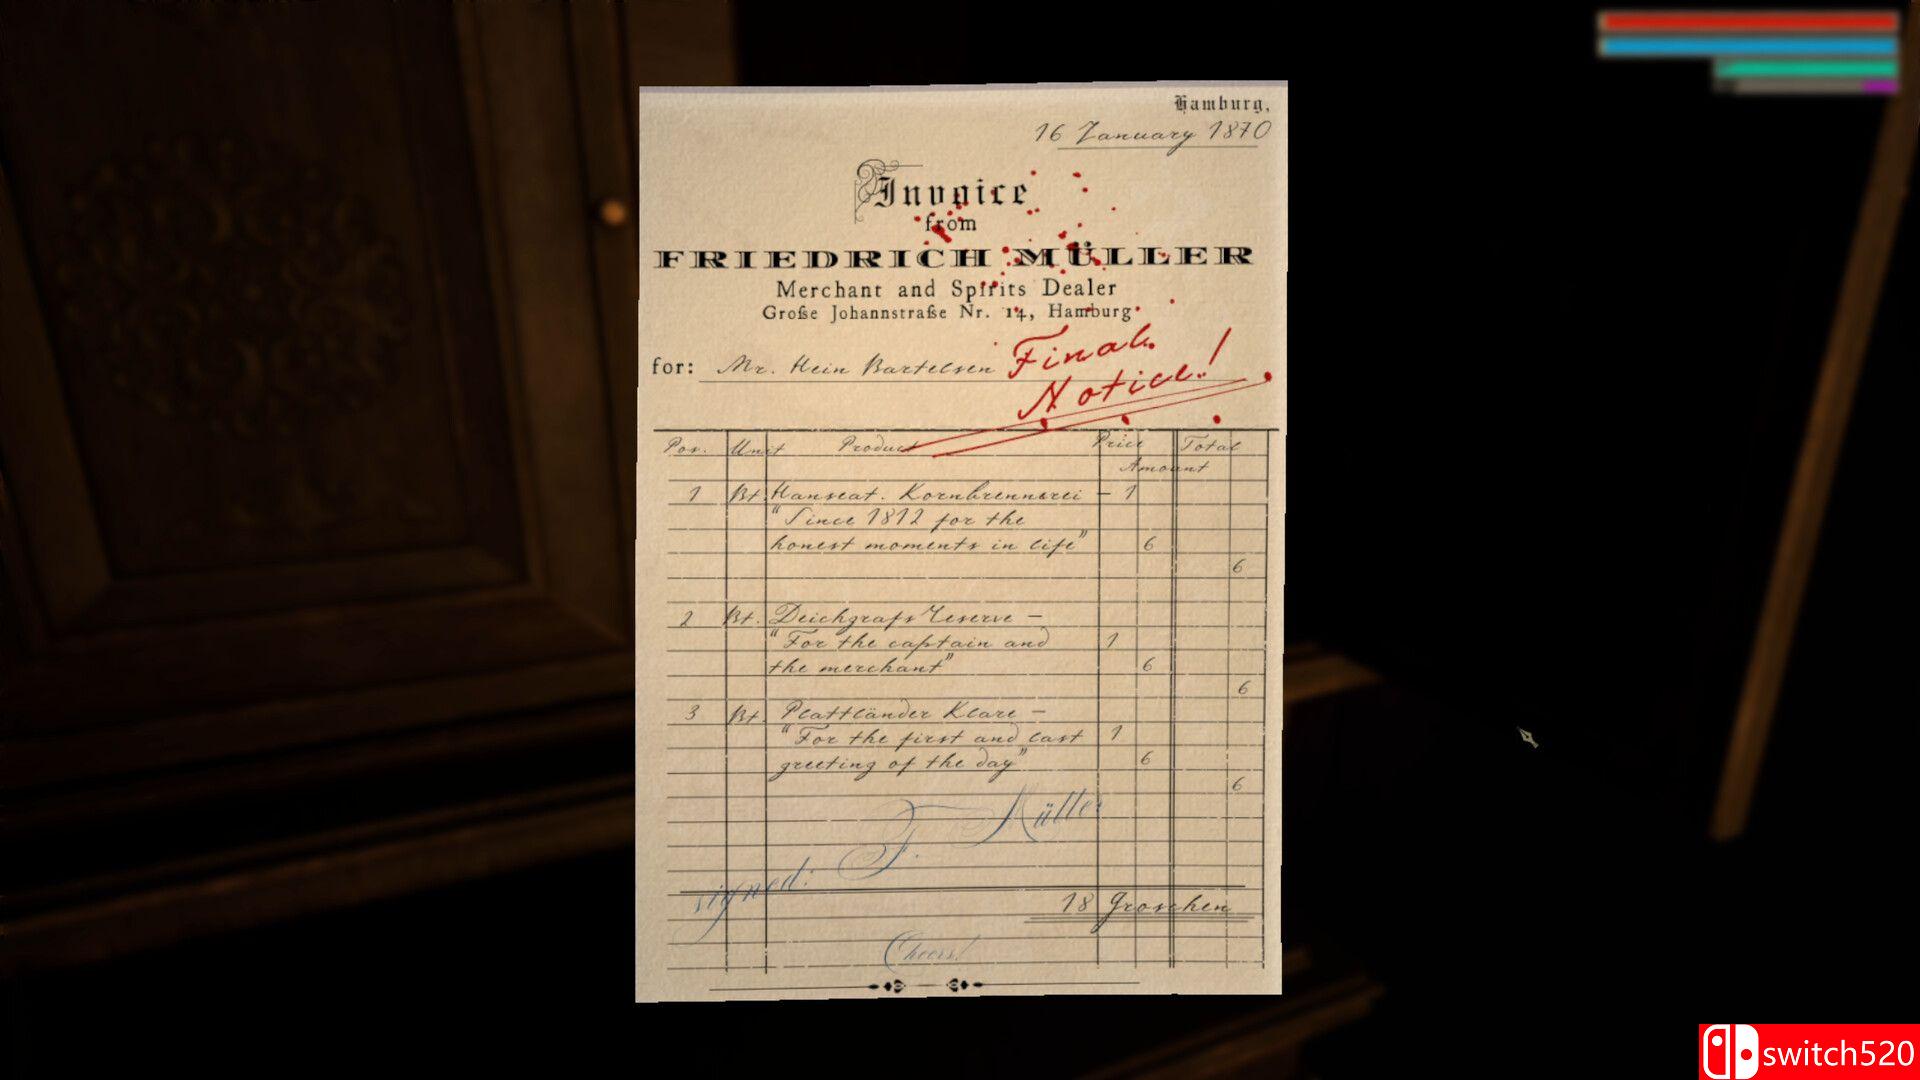 Hamburg,
16 January 1870
Invoice
from
FRIEDRICH MÜLLER
Merchant and Spirits Dealer
Große Johannstraße Nr. 14, Hamburg
for: Mr. Hein Bartelsen
Final
Notice!
Pos. Unit Product Price Total
Amount
1 Bt. Hanseat. Kornbrennerei - 1
"Since 1812 for the
honest moments in life" 6
6
2 Bt. Deichgrafs Reserve -
"For the captain and 1
the merchant" 6
6
3 Bt. Plattländer Klare -
"For the first and last 1
greeting of the day" 6
6
signed: F. Müller
18 Groschen
Cheers!
switch520